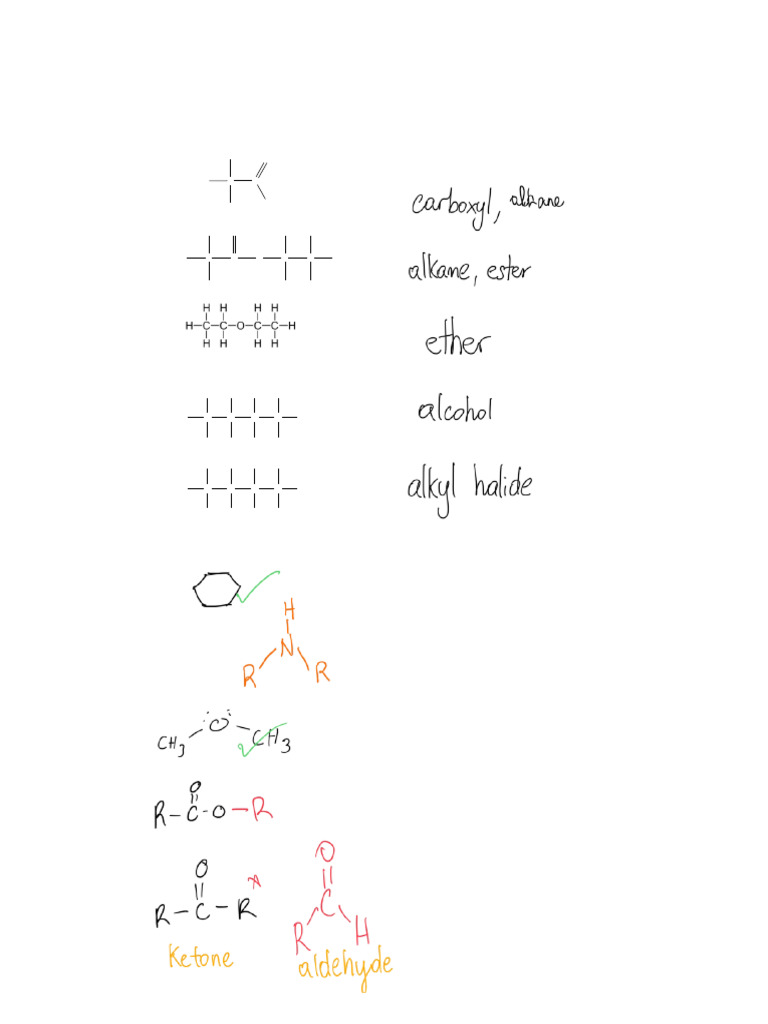 carboxyl, alkane
alkane, ester
H H H H
H-C-C-O-C-C-H
H H H H
ether
alcohol
alkyl halide
H
N
R R
O
CH3 CH3
O
R-C-O-R
O
R-C-R
O
C
R H
Ketone
aldehyde